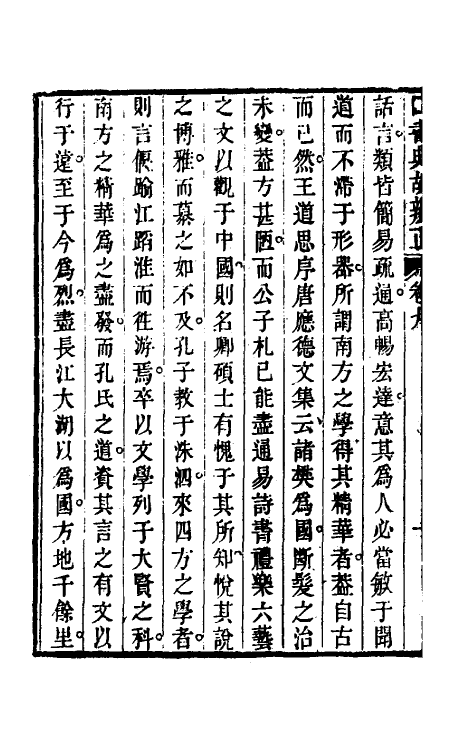 四書典故辨正 卷九
話言類皆簡易疏通高暢宏達意其爲人必當敏于聞
道而不滯于形器所謂南方之學得其精華者葢自古
而已然王道思序唐應德文集云諸樊爲國斷髮之治
未變葢方甚陋而公子札已能盡通易詩書禮樂六藝
之文以觀于中國則名卿碩士有愧于其所知悅其說
之博雅而慕之如不及孔子教于洙泗來四方之學者
則言偃踰江蹈淮而徃游焉卒以文學列于大賢之科
南方之精華爲之盡發而孔氏之道資其言之有文以
行于遠至于今爲烈盡長江大湖以爲國方地千餘里